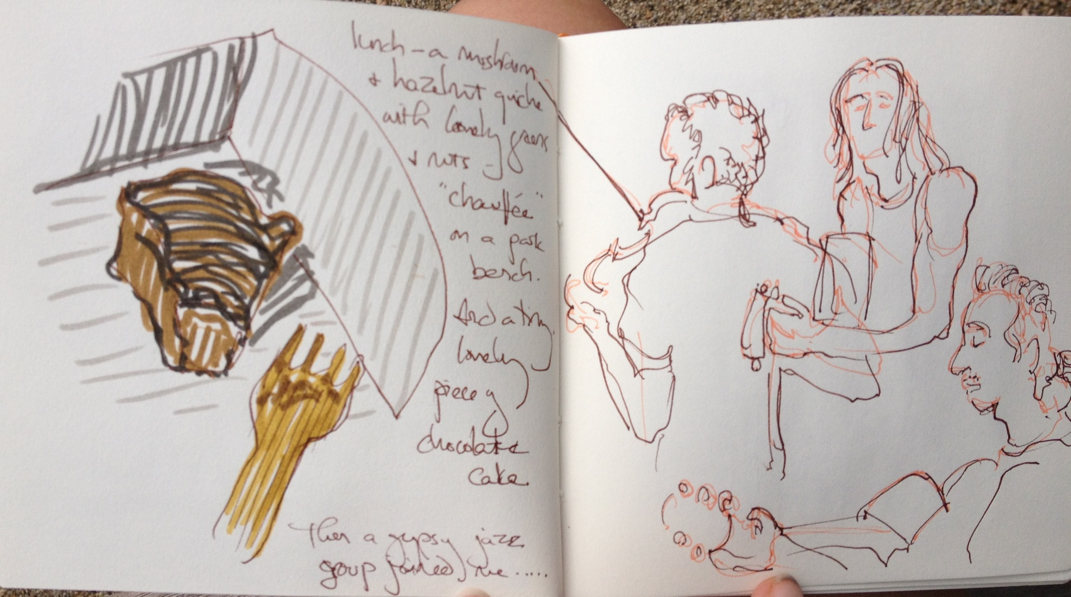 lunch - a mushroom
& hazelnut quiche
with lovely greens
& nuts -
"chauffée"
on a park
bench.
And a tiny,
lovely
piece of
chocolate
cake.
Then a gypsy jazz
group joined me.....